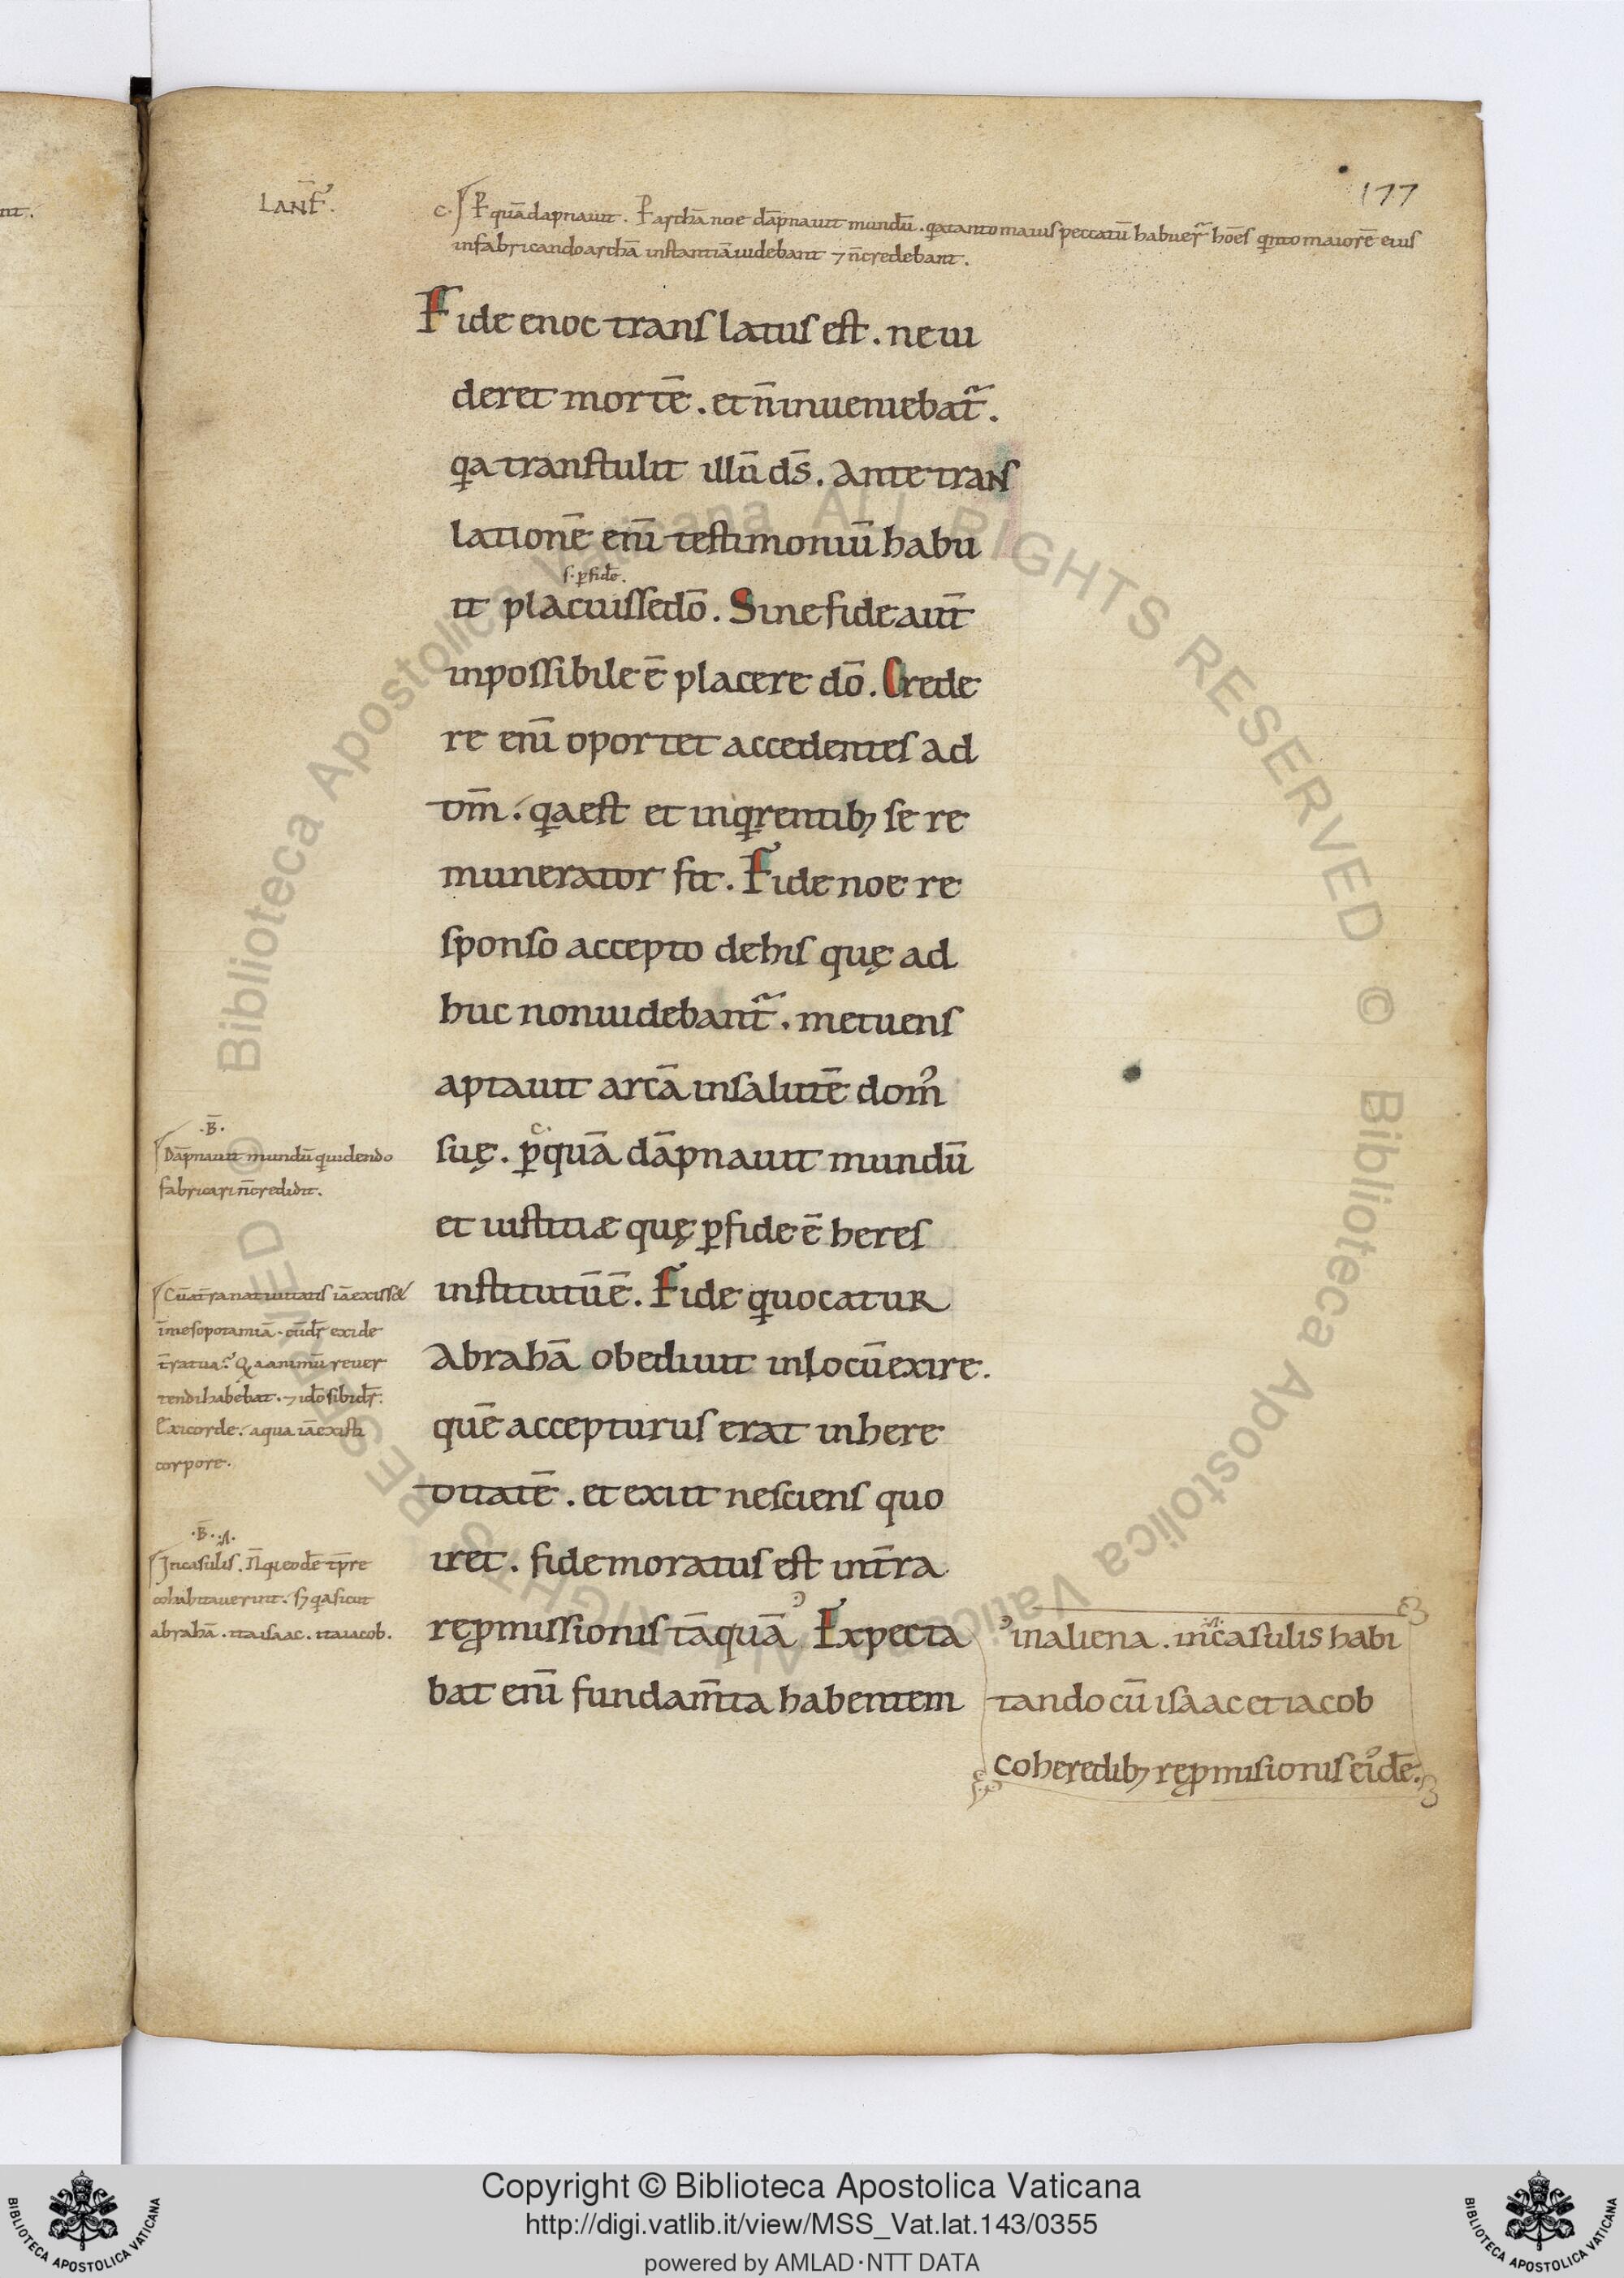 177
LANF̄.
c. P̄ quā dapnauit. P̄ archā noe dāpnauit mundū. qa tanto maius peccatū habuer̄ hoēs qnto maiorē eius
in fabricando archā instantiā uidebant ⁊ n̄ credebant.
Fide enoc translatus est. ne ui
deret mortē. et n̄ inueniebat̄.
qa transtulit illū ds̄. Ante trans
lationē enī testimoniū habu
s. p fidē.
it placuisse dō. Sine fide aut̄
inpossibile ē placere dō. Crede
re enī oportet accedentes ad
dm̄. qa est et inqrentibꝫ se re
munerator sit. Fide noe re
sponso accepto de his quę ad
huc non uidebant̄. metuens
aptauit arcā in salutē dom᷒
c.
suę. ꝑ quā dāpnauit mundū
et iustitiæ quę ꝑ fide ē heres
institutū ē. Fide q uocatur
Abrahā obediuit in locū exire.
quē accepturus erat in here
ditatē. et exiit nesciens quo
iret. fide moratus est in t̄ra
reꝓmissionis tāquā Expecta
bat enī fundam̄ta habentem
in aliena. in casulis habi
tando cū isaac et iacob
coheredibꝫ reꝓmisionis ei᷒dē.
.B̄.
Dāpnauit mundū q uidendo
fabricari n̄ credidit.
Cū a t̄ra natiuitatis iā exisset
in mesopotamiā. cū dr̄ exi de
t̄ra tua? Qa animū reuer
tendi habebat. ⁊ idō sibi dr̄.
Exi corde. a qua iā existi
corpore.
.B̄.
In casulis. N̄ qd eodē tp̄re
cohabitauerint. sꝫ qa sicut
abrahā. ita isaac. ita iacob.
Copyright © Biblioteca Apostolica Vaticana
http://digi.vatlib.it/view/MSS_Vat.lat.143/0355
powered by AMLAD·NTT DATA
BIBLIOTECA APOSTOLICA VATICANA
BIBLIOTECA APOSTOLICA VATICANA
© Biblioteca Apostolica Vaticana ALL RIGHTS RESERVED © Biblioteca Apostolica Vaticana ALL RIGHTS RESERVED